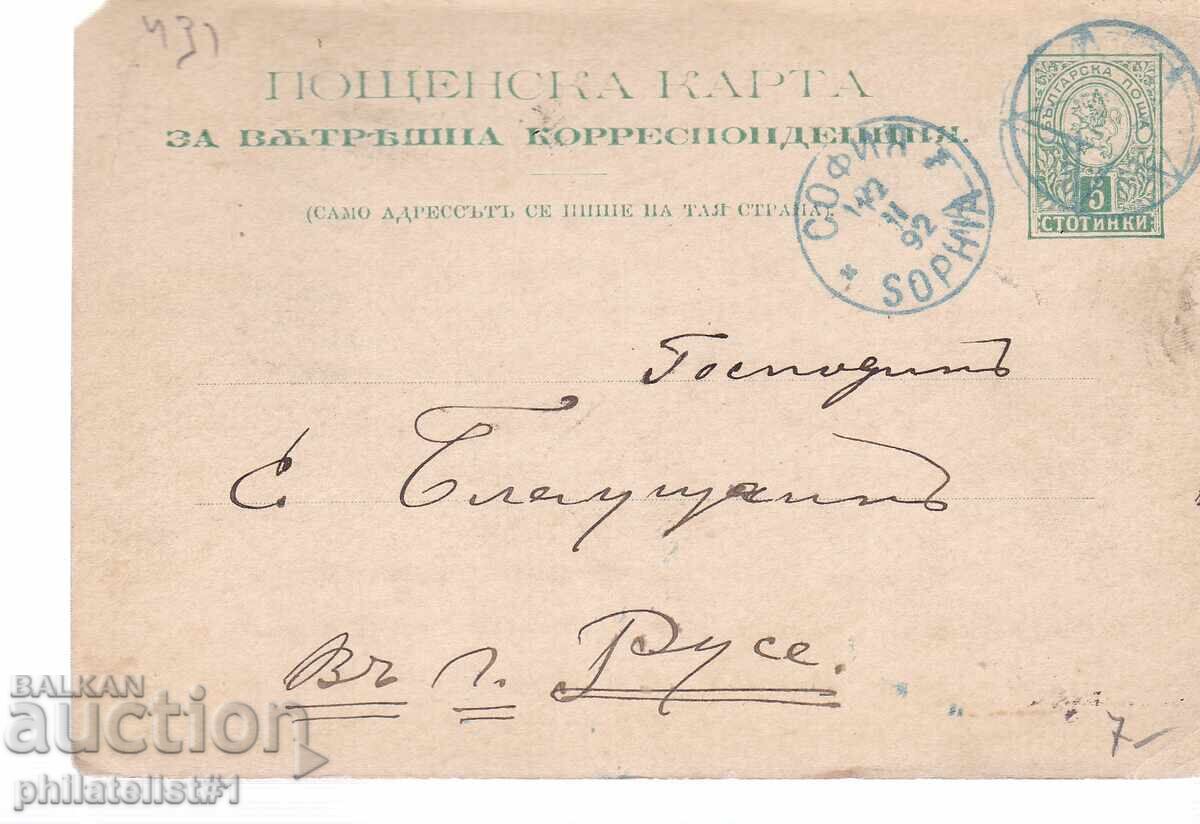 431
ПОЩЕНСКА КАРТА
ЗА ВѪТРѢШНА КОРРЕСПОНДЕНЦИЯ.
(САМО АДРЕССЪТЪ СЕ ПИШЕ НА ТАЯ СТРАНА).
БЪЛГАРСКА ПОЩА
5
СТОТИНКИ
СОФИЯ
II
92
SOPHIA
Господинъ
Е.
Въ г. Русе.
7
BALKAN
auction
philatelist#1